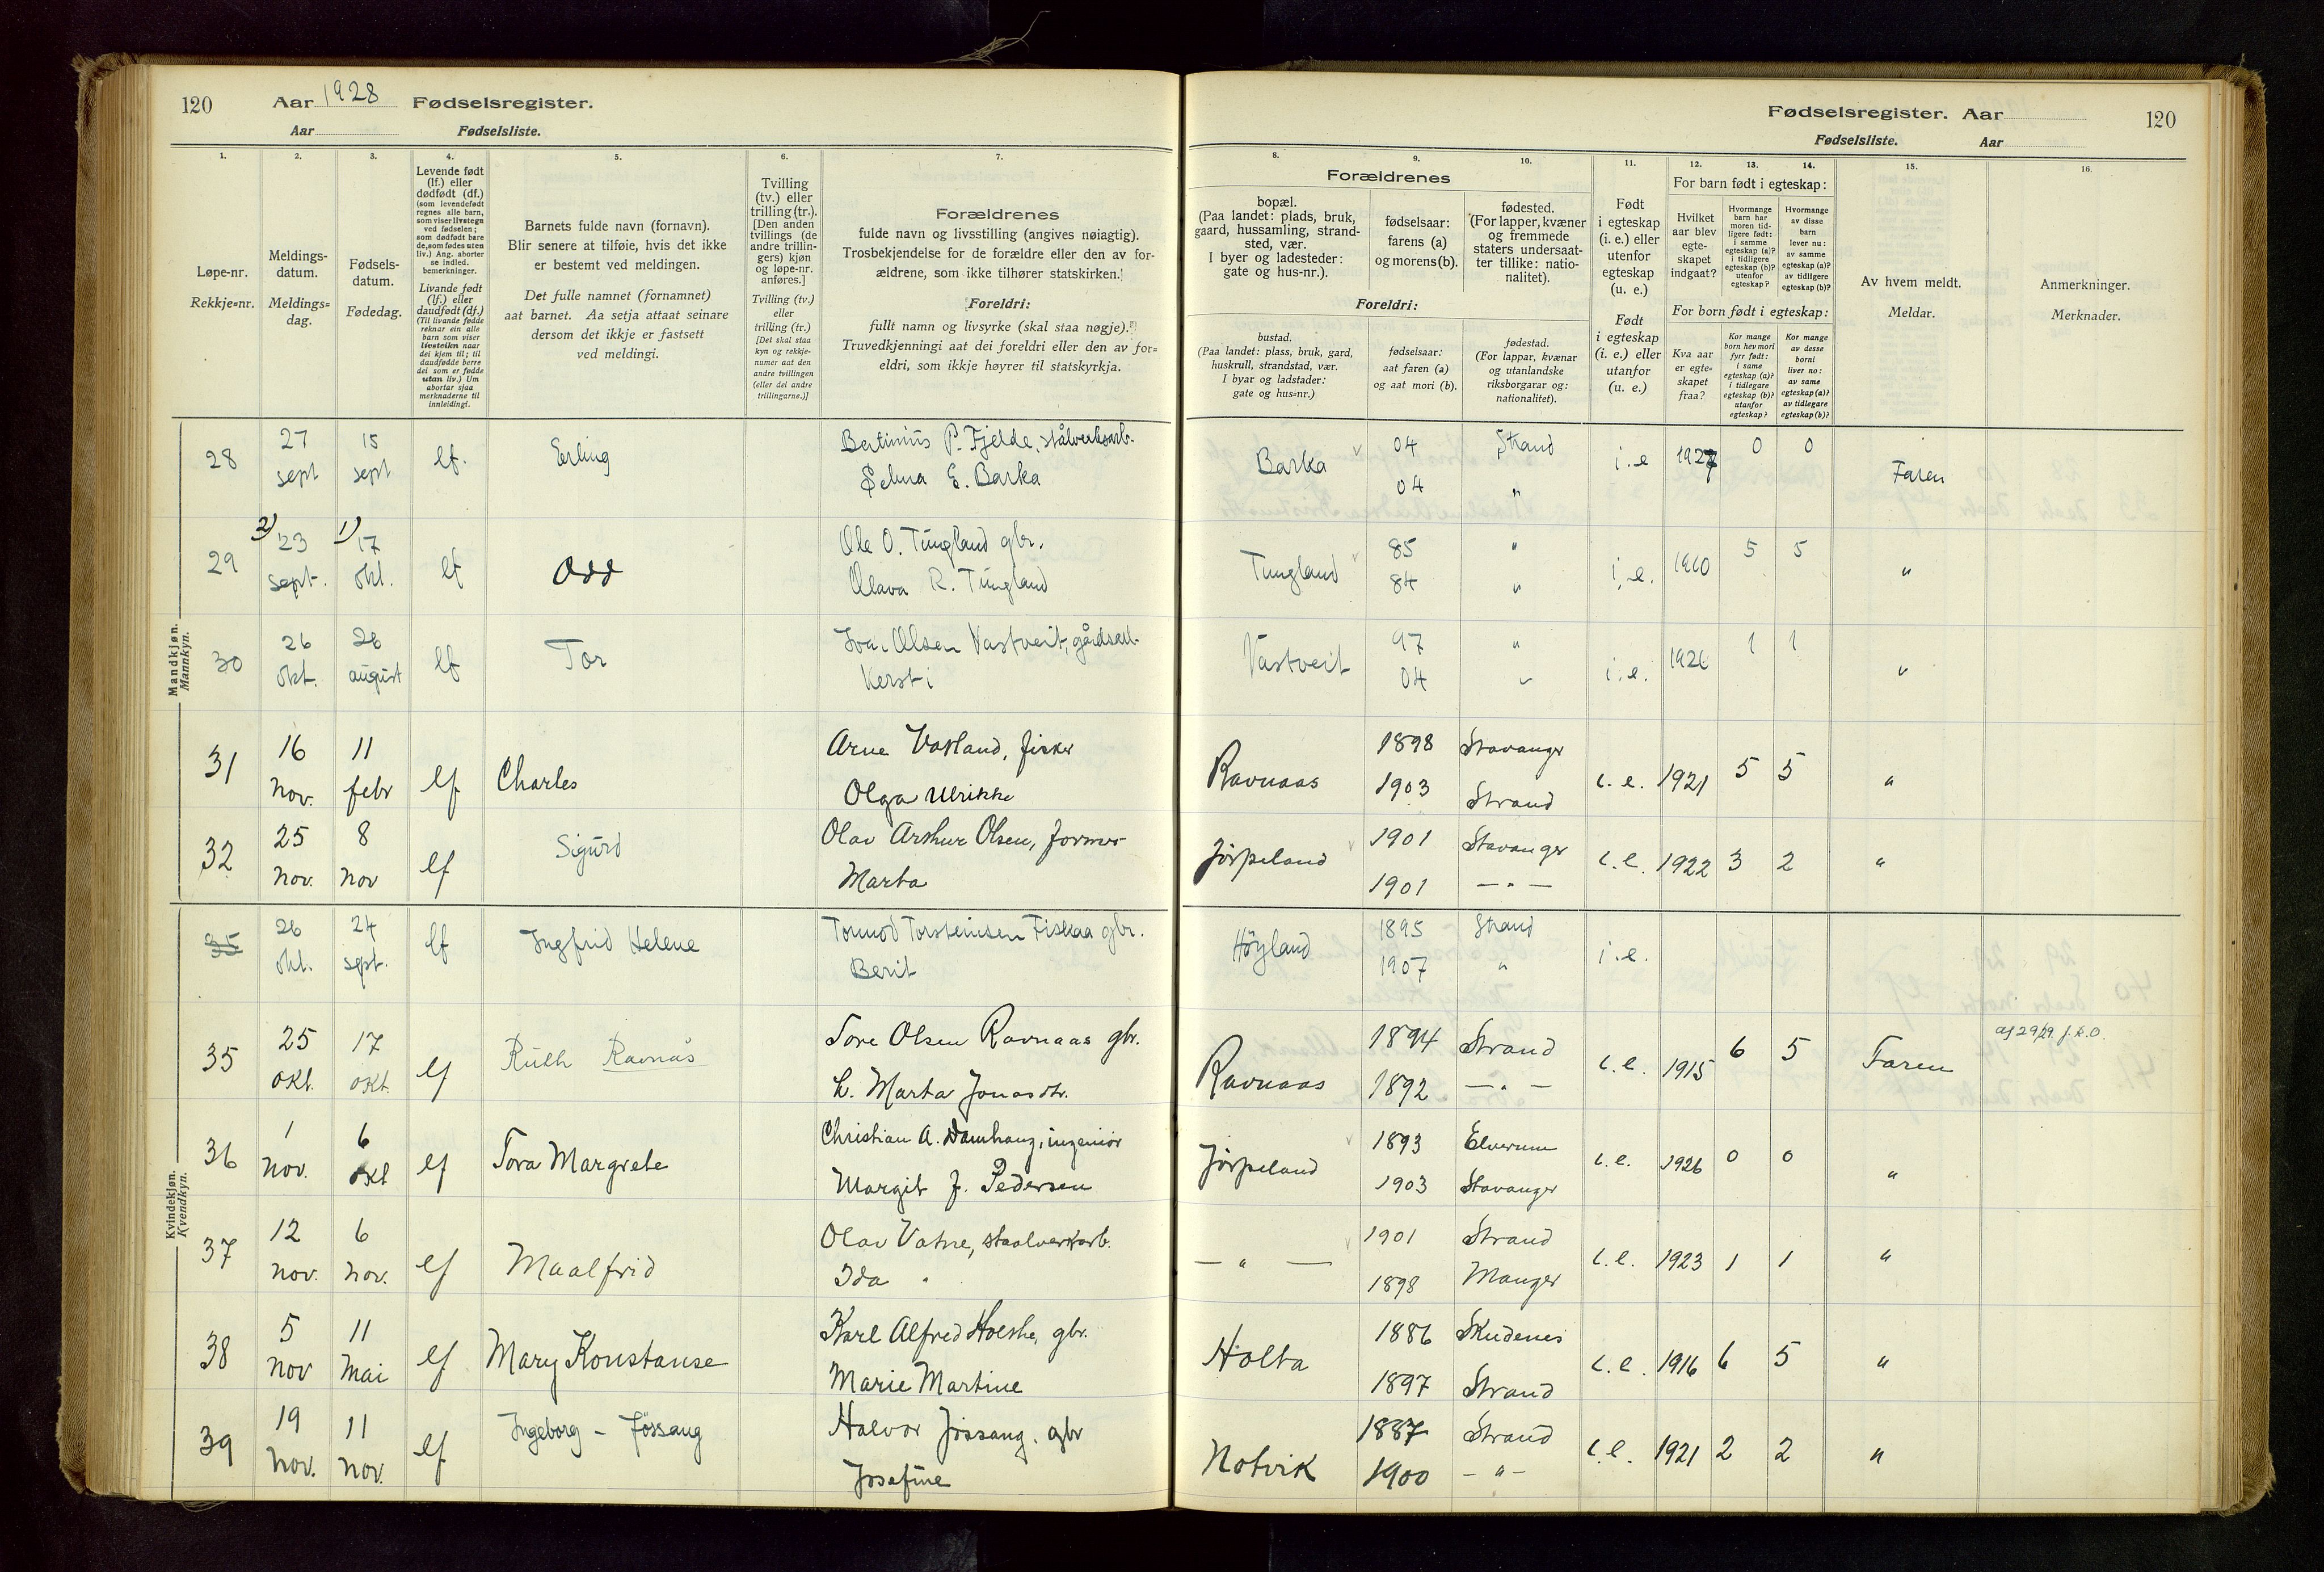 120 Aar 1928 Fødselsregister.
Aar Fødselsliste.
1. 2. 3. 4. 5. 6. 7.
Løpe-nr.
Rekkje=nr.
Meldings-
datum.
Meldings=
dag.
Fødsels-
datum.
Fødedag.
Levende født
(lf.) eller
dødfødt (df.)
(som levendefødt
regnes alle barn,
som viser livstegn
ved fødselen;
som dødfødt bare
de, som fødes uten
liv.) Ang. aborter
se indled.
bemerkninger.
Livande født
(lf.) eller
daudfødt (df.)
(Til livande fødde
reknar ein alle
barn som viser
livsteikn naar
dei kjem til; til
daudfødde berre
dei som er fødde
utan liv.) Um
abortar sjaa
merknaderne til
innleidingi.
Barnets fulde navn (fornavn).
Blir senere at tilføie, hvis det ikke
er bestemt ved meldingen.
Det fulle namnet (fornamnet)
aat barnet. Aa setja attaat seinare
dersom det ikkje er fastsett
ved meldingi.
Tvilling
(tv.) eller
trilling (tr.).
[Den anden
tvillings (de
andre trillin-
gers) kjøn
og løpe-nr.
anføres.]
Tvilling (tv.)
eller
trilling (tr.)
[Det skal staa
kyn og rekkje-
numer aat den
andre tvillingen
(eller dei andre
trillingarne.)]
Forældrenes
fulde navn og livsstilling (angives nøiagtig).
Trosbekjendelse for de forældre eller den av for-
ældrene, som ikke tilhører statskirken.
Foreldri:
fullt namn og livsyrke (skal staa nøgje).
Truvedkjenningi aat dei foreldri eller den av for=
eldri, som ikkje høyrer til statskyrkja.
Mandkjøn.
Mannkyn.
28 27 sept 15 sept lf. Erling
Bertinius P. Fjelde, stålverksarb.
Selma E. Barka
29 2) 23 sept. 1) 17 okt. lf Odd
Ole O. Tungland gbr.
Olava R. Tungland
30 26 okt. 26 august lf Tor
Ivar Olsen Vastveit, gårdsarb.
Kersti
31 16 nov. 11 febr lf Charles
Arne Vasland, fisker
Olga Ulrikke
32 25 nov. 8 nov lf Sigurd
Olav Arthur Olsen, former
Marta
Kvindekjøn.
Kvendkyn.
35 26 okt. 24 sept. lf Ingfrid Helene
Tormod Torsteinsen Fiskaa gbr.
Berit
35 25 okt. 17 okt. lf Ruth Ravnås
Tore Olsen Ravnaas gbr.
h. Marta Jonasdtr.
36 1 nov. 6 okt lf Tora Margrete
Christian A. Damhaug, ingeniör
Margit J. Pedersen
37 12 nov. 6 nov. lf Maalfrid
Olav Vatne, staalverksarb.
Ida "
38 5 nov 11 mai lf Mary Konstanse
Karl Alfred Hoeshe, gbr.
Marie Martine
39 19 nov. 11 nov. lf Ingeborg - Jössang
Halvor Jössang. gbr
Josefine
Fødselsregister. Aar 120
Fødselsliste. Aar
8. 9. 10. 11. 12. 13. 14. 15. 16.
Forældrenes
bopæl.
(Paa landet: plads, bruk,
gaard, hussamling, strand-
sted, vær.
I byer og ladesteder:
gate og hus-nr.).
fødselsaar:
farens (a)
og morens (b).
fødested.
(For lapper, kvæner
og fremmede
staters undersaat-
ter tillike: natio-
nalitet).
Foreldri:
bustad.
(Paa landet: plass, bruk, gard,
huskrull, strandstad, vær.
I byar og ladstader:
gate og hus=nr.)
fødselsaar:
aat faren (a)
og aat mori (b).
fødestad.
(For lappar, kvænar
og utanlandske
riksborgarar og:
nationalitet).
Født
i egteskap
(i. e.) eller
utenfor
egteskap
(u. e.)
Født
i egteskap
(i. e.) eller
utanfor
(u. e.)
For barn født i egteskap:
Hvilket
aar blev
egte-
skapet
indgaat?
Hvormange
barn har
moren tid-
ligere født:
i samme
egteskap (a)?
i tidligere
egteskap (b)?
utenfor
egteskap?
Hvormange
av disse
barn
lever nu:
av samme
egteskap (a)?
av tidligere
egteskap (b)?
For born født i egteskap:
Kva aar
er egte=
skapet
fraa?
Kor mange
born hev mori
fyrr født:
i same
egteskap (a)?
i tidlegare
egteskap (b)?
utanfor
egteskap?
Kor mange
av desse
borni
liver no:
av same
egteskap (a)?
av tidlegare
egteskap (b)?
Av hvem meldt.
Meldar.
Anmerkninger.
Merknader.
Barka 04 Strand i. e 1927 0 0 Faren
04 "
Tungland 85 " i. e. 1910 5 5 "
84 "
Vastveit 97 " i. e. 1926 1 1 "
04 "
Ravnaas 1898 Stavanger i. e. 1921 5 5 "
1903 Strand
Jörpeland 1901 Stavanger i. e. 1922 3 2 "
1901 — " —
Höyland 1895 Strand i. e.
1907 "
Ravnaas 1894 Strand i. e. 1915 6 5 Faren
1892 — " —
Jörpeland 1893 Elverum i. e. 1926 0 0 "
1903 Stavanger
— " — 1901 Strand i. e. 1923 1 1 "
1898 Manger
Holta 1886 Skudenes i. e. 1916 6 5 "
1897 Strand
Notvik 1887 Strand i. e. 1921 2 2 "
1900 — " —